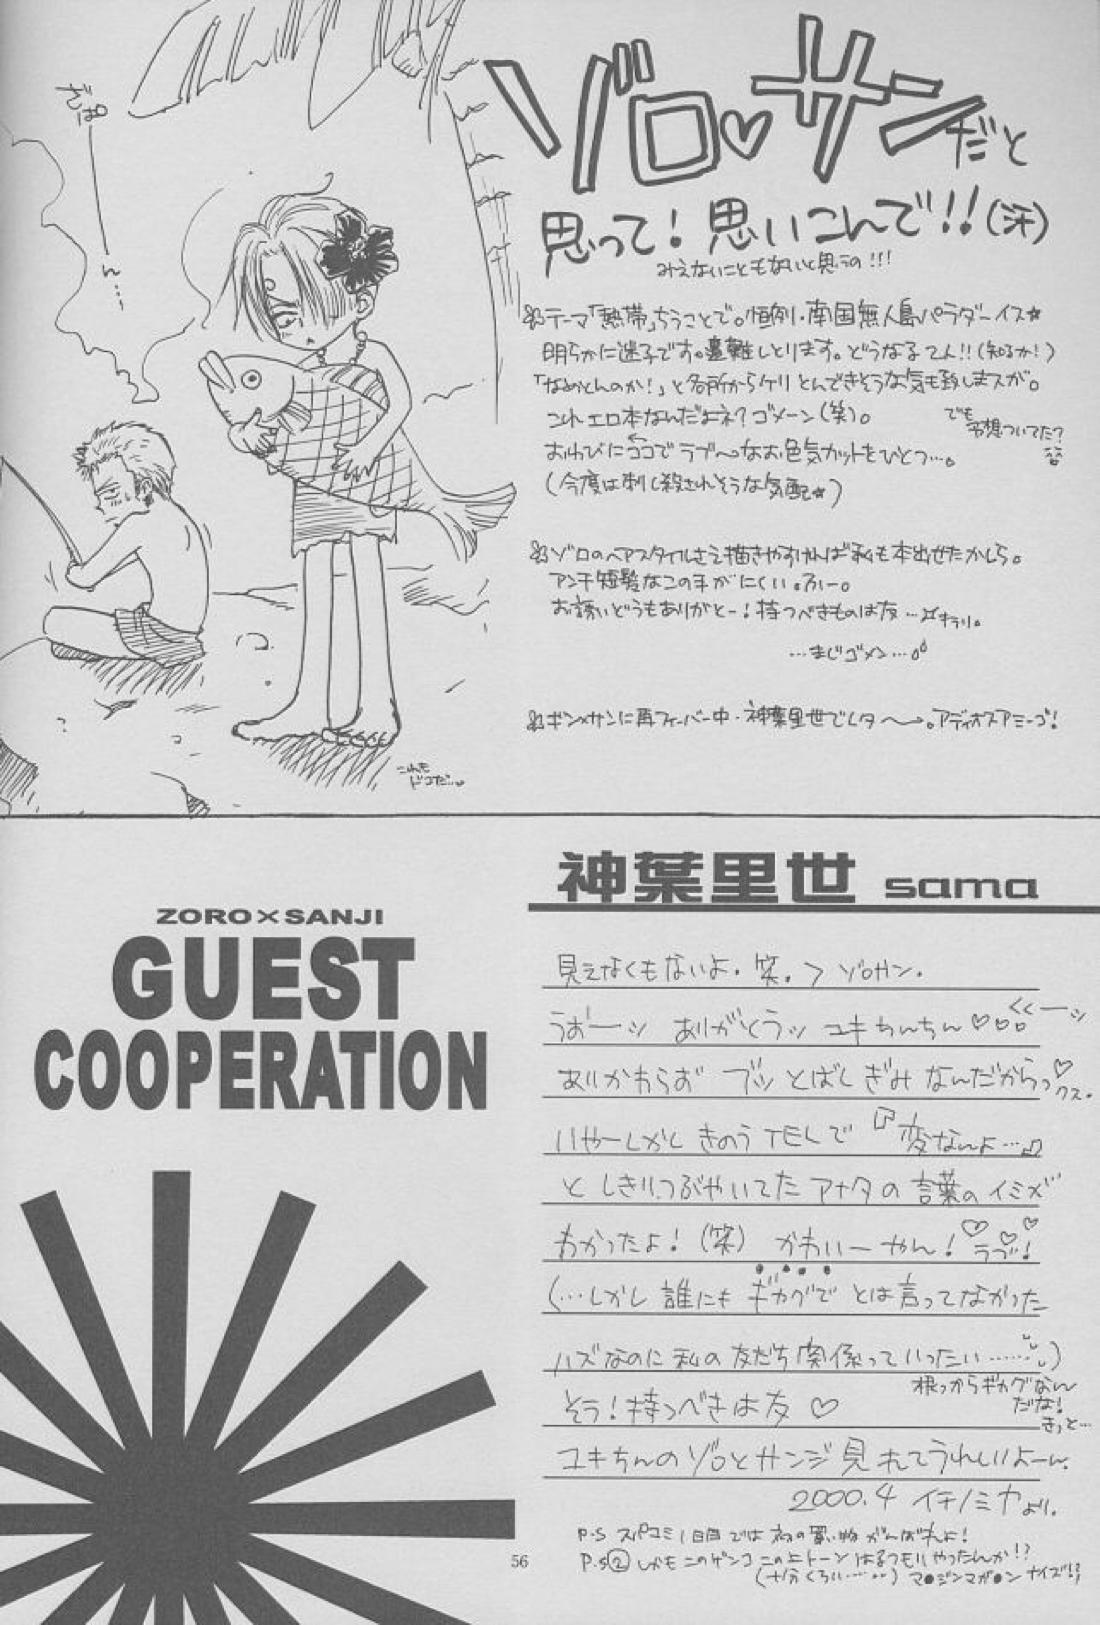 ゾロ♡サンだと
思って！思いこんで!!(汗)
みえないこともないと思うの!!!
テーマ「熱帯」ちうことで。恒例・南国無人島パラダーイス☆
明らかに迷子です。遭難しとります。どうなるてん!!(知るか!)
「なめとんのか!」と各所からケリとんできそうな気も致しまスが。
これエロ本なんだよネ?ゴメーン(笑)。
でも
予想ついてた?
おわびにココでラブ〜なお色気カットをひとつ…。
(今度は刺し殺されそうな気配☆)
ゾロのヘアスタイルさえ描きやすければ私も本出せたかしら。
アンチ短髪なこの手がにくい。ふー。
お誘いどうもありがとー!持つべきものは友…キラリ。
…まじゴメン…
ギン×サンに再フィーバー中・神葉里世でしタ〜。アディオスアミーゴ!
これも
ドコだ…
神葉里世 sama
ZORO×SANJI
GUEST
COOPERATION
見えなくもないよ・笑。> ゾロサン.
うおーッ ありがとうッ ユキちんちん♡
あいかわらず ブッとばしぎみなんだからっ♡
クス。
いやーしかし きのうTELで『変なんよ…』
と しきりにつぶやいてた アナタの言葉のイミが
わかったよ!(笑) かわいーやん! ラブ!
(…しかし 誰にも ギャグで とは言ってなかった
ハズなのに 私の友だち関係って いったい……)
根っからギャグなん
だな!
きっと…
そう!持つべきは友 ♡
ユキちんのゾロとサンジ見れてうれしいよーん
2000.4 イチノミヤより.
P.S スパコミ1日目では 初の買い物 がんばれよ!
P.S② しかもこのゲンコ この上トーンはるつもりやったんか!?
(十分くろい……) マ●ジンマガ●ン ナイズ!?
56